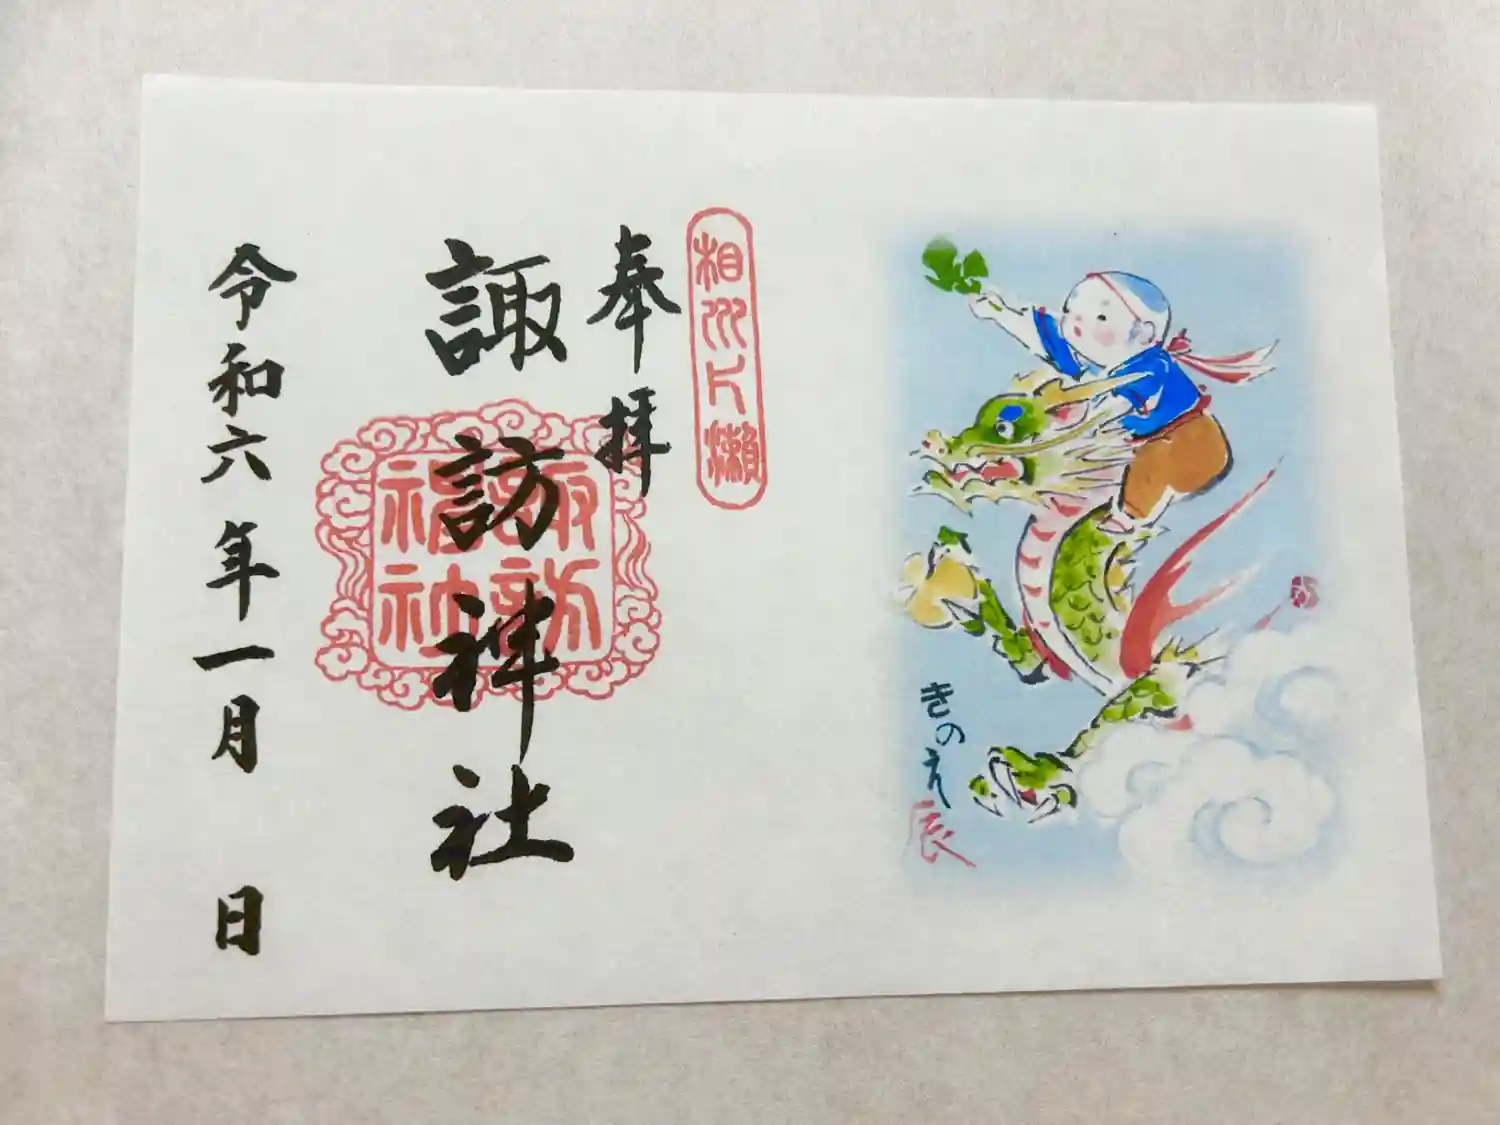 きのえ
辰
相州片瀬
奉拝
諏訪神社
諏訪
神社
令和六年一月 日